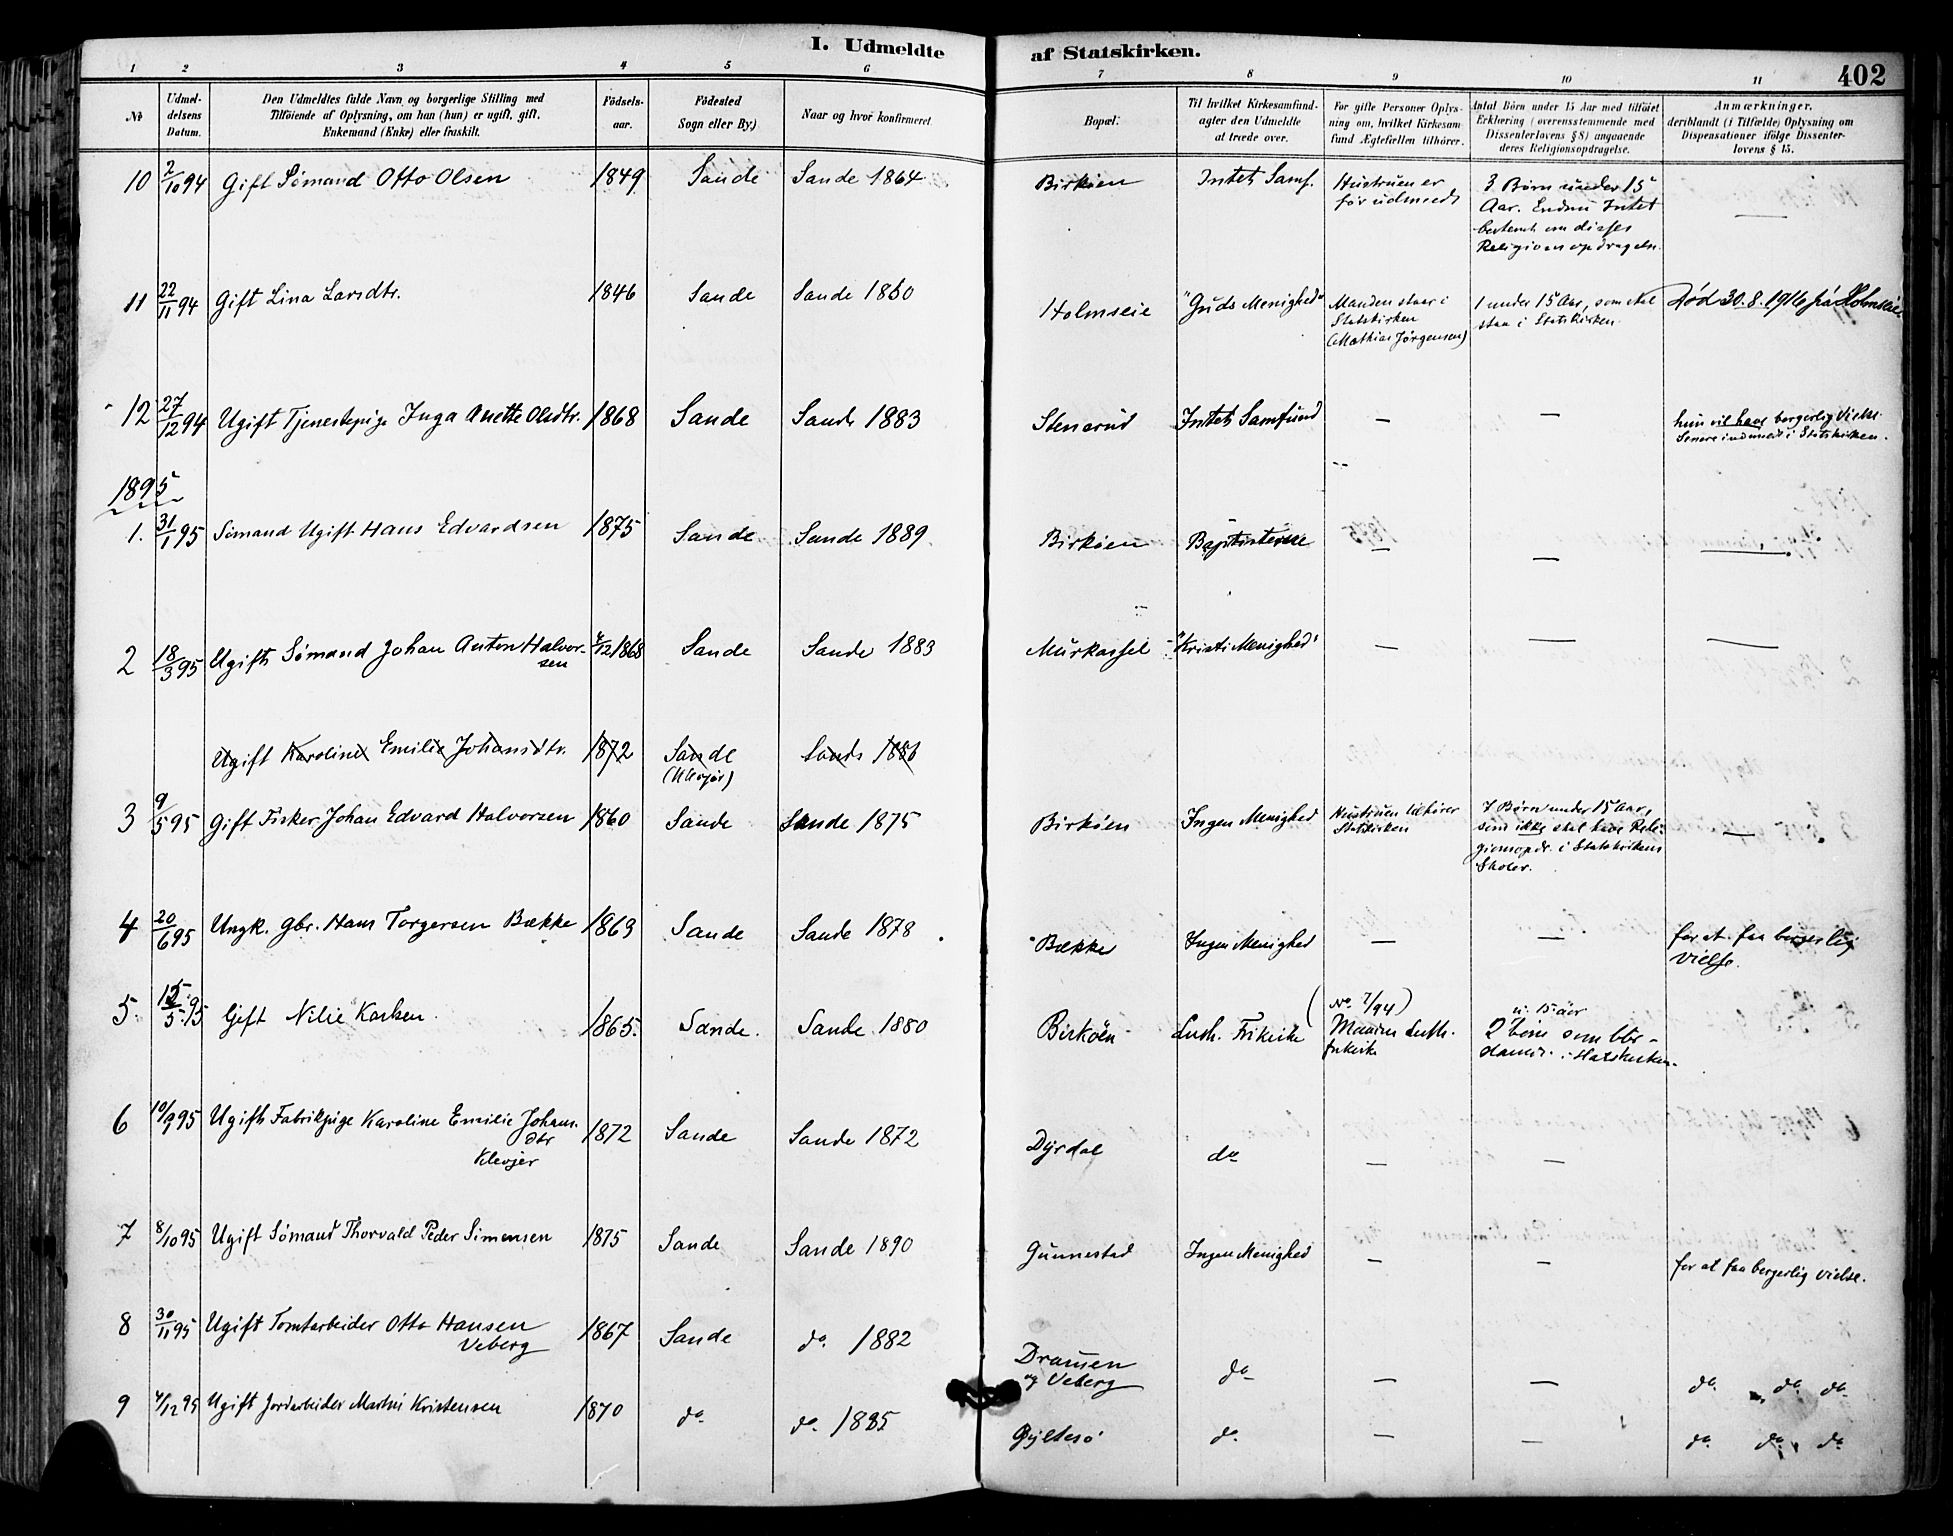 I. Udmeldte af Statskirken.
402
1 2 3 4 5 6 7 8 9 10 11
No
Udmel-
delsens
Datum.
Den Udmeldtes fulde Navn og borgerlige Stilling med
Tilföiende af Oplysning, om han (hun) er ugift, gift,
Enkemand (Enke) eller fraskilt.
Födsels-
aar.
Födested
Sogn eller By.)
Naar og hvor konfirmeret.
Bopæl.
Til hvilket Kirkesamfund-
agter den Udmeldte
at træde over.
For gifte Personer Oplys-
ning om, hvilket Kirkesam-
fund Ægtefællen tilhörer.
Antal Börn under 15 Aar med tilföiet
Erklæring (overensstemmende med
Dissenterlovens § 8) angaaende
deres Religionsopdragelse.
Anmærkninger,
deriblandt (i Tilfælde) Oplysning om
Dispensationer ifölge Dissenter-
lovens § 15.
10 2/10 94 Gift Sømand Otto Olsen 1849 Sande Sande 1864 Birköen Intet Samf. Hustruen er
før udmeldt
3 Børn under 15
Aar. Endnu Intet
bestemt om disses
Religionsopdragelse.
—
11 22/11 94 Gift Lina Larsdtr. 1846 Sande Sande 1860 Holmseie "Guds Menighed" Manden staar i
Statskirken
(Mathias Jørgensen)
1 under 15 Aar, som skal
staa i Statskirken.
Død 30.8.1916 frá Holmseie
12 27/12 94 Ugift Tjenestepige Inga Anette Olsdtr. 1868 Sande Sande 1883 Stenarud Intet Samfund — —
hun vil have borgerlig Vielse.
Senere indmeldt i Statskirken.
1895
1. 31/1 95 Sømand Ugift Hans Edvardsen 1875 Sande Sande 1889 Birköen Baptisterne — — —
2 18/3 95 Ugift Sømand Johan Anton Halvor-
sen
/12 1868 Sande Sande 1883 Murkassel "Kristi Menighed" — — —
Ugift Karoline Emilie Johansdtr. 1872 Sande
(Klevjer)
Sande 1886
3 9/5 95 Gift Fisker Johan Edvard Halvorsen 1860 Sande Sande 1875 Birköen Ingen Menighed Hustruen tilhører
Statskirken
7 Børn under 15 Aar,
som ikke skal have Reli-
gionsopdr. i Statskirkens
Skoler.
—
4 20/6 95 Ungk. gbr. Hans Torgersen Bække 1863 Sande Sande 1878 Bække Ingen Menighed — —
for at faa borgerlig
Vielse.
5. /5 95 Gift Nilie Karlsen 1865. Sande. Sande 1880 Birköen Luth. Frikirke
(No 7/94)
Manden Luth.
frikirke
u. 15 aar
2 børn som
i statskirken.
6 10/9 95 Ugift Fabrikpige Karoline Emilie Johans.
dtr
Klevjer
1872 Sande Sande 1872 Dyrdal do — —
7 8/10 95 Ugift Sømand Thorvald Peder Simensen 1875 Sande Sande 1890 Gunnestad Ingen Menighed — —
for at faa borgerlig vielse.
8 30/11 95 Ugift Tomtarbeider Otto Hansen
Veberg
1867 Sande do. 1882 Dramen
og Veberg
do — — do. do. do.
9 4/12 95 Ugift Jordarbeider Martin Kristensen 1870 do do. 1885 Gyltesö do. — — do. do. do